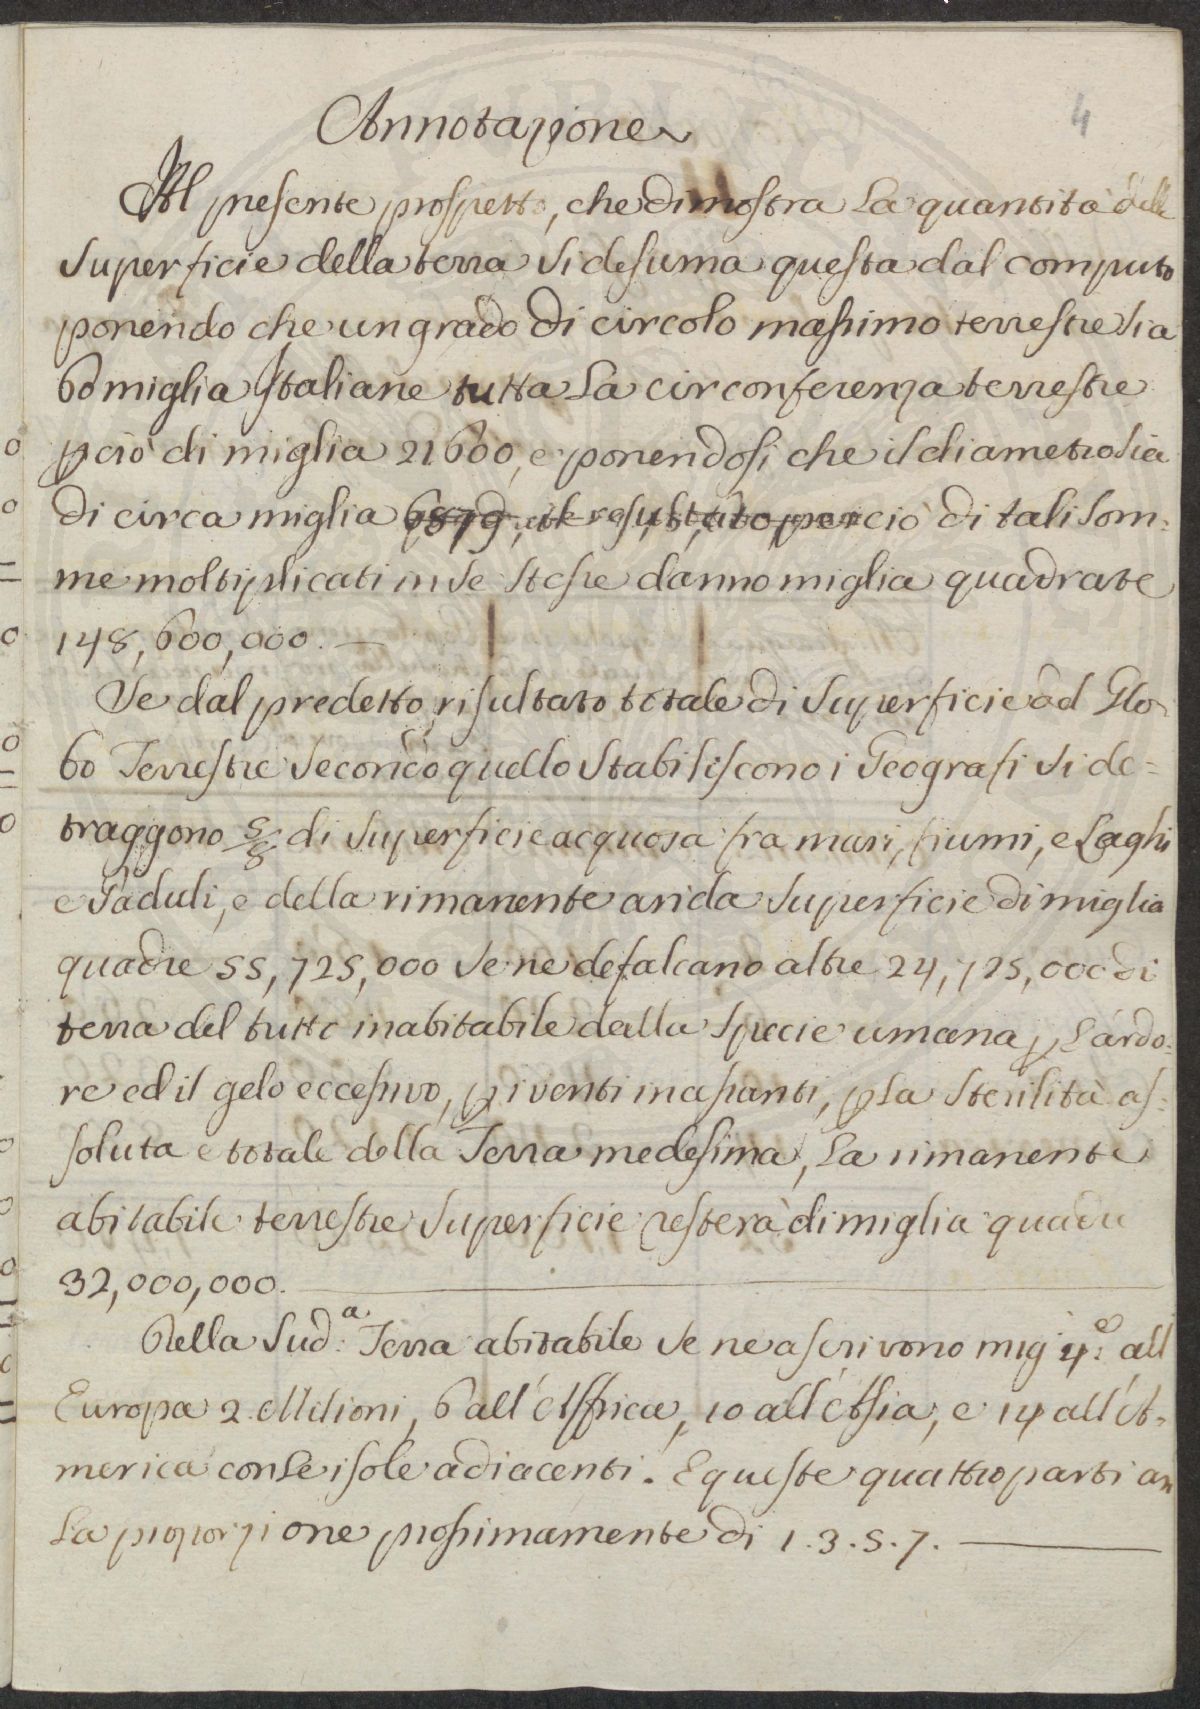 4
Annotazione
Il presente prospetto, che dimostra la quantità della
superficie della terra si desuma questa dal computo
ponendo che un grado di circolo massimo terrestre sia
60 miglia Italiane tutta la circonferenza terrestre
pciò di miglia 21600, e ponendosi che il diametro sia
di circa miglia 6879, il resultato perciò di tali som:
me moltiplicati in se stesse danno miglia quadrate
148,600,000.
Se dal predetto risultato totale di superficie ad Glo
bo Terrestre secondo quello stabiliscono i Geografi si de=
traggono 5/8 di superficie acquosa fra mari, fiumi, e Laghi
e Paduli, e della rimanente arida superficie di miglia
quadre 55,725,000 se ne defalcano altre 24,725,000 di
terra del tutto inabitabile dalla specie umana p l'ardo:
re ed il gelo eccessivo, p i venti inassanti, p la sterilità as:
soluta e totale della Terra medesima, la rimanente
abitabile terrestre superficie resterà di miglia quadre
32,000,000.
Della Sud:a Terra abitabile se ne ascrivono mig q:e all
Europa 2 Milioni, 6 all'Affrica, 10 all'Assia, e 14 all'A=
merica con le isole adiacenti. E queste quattro parti an
la proporzione prossimamente di 1.3.5.7.